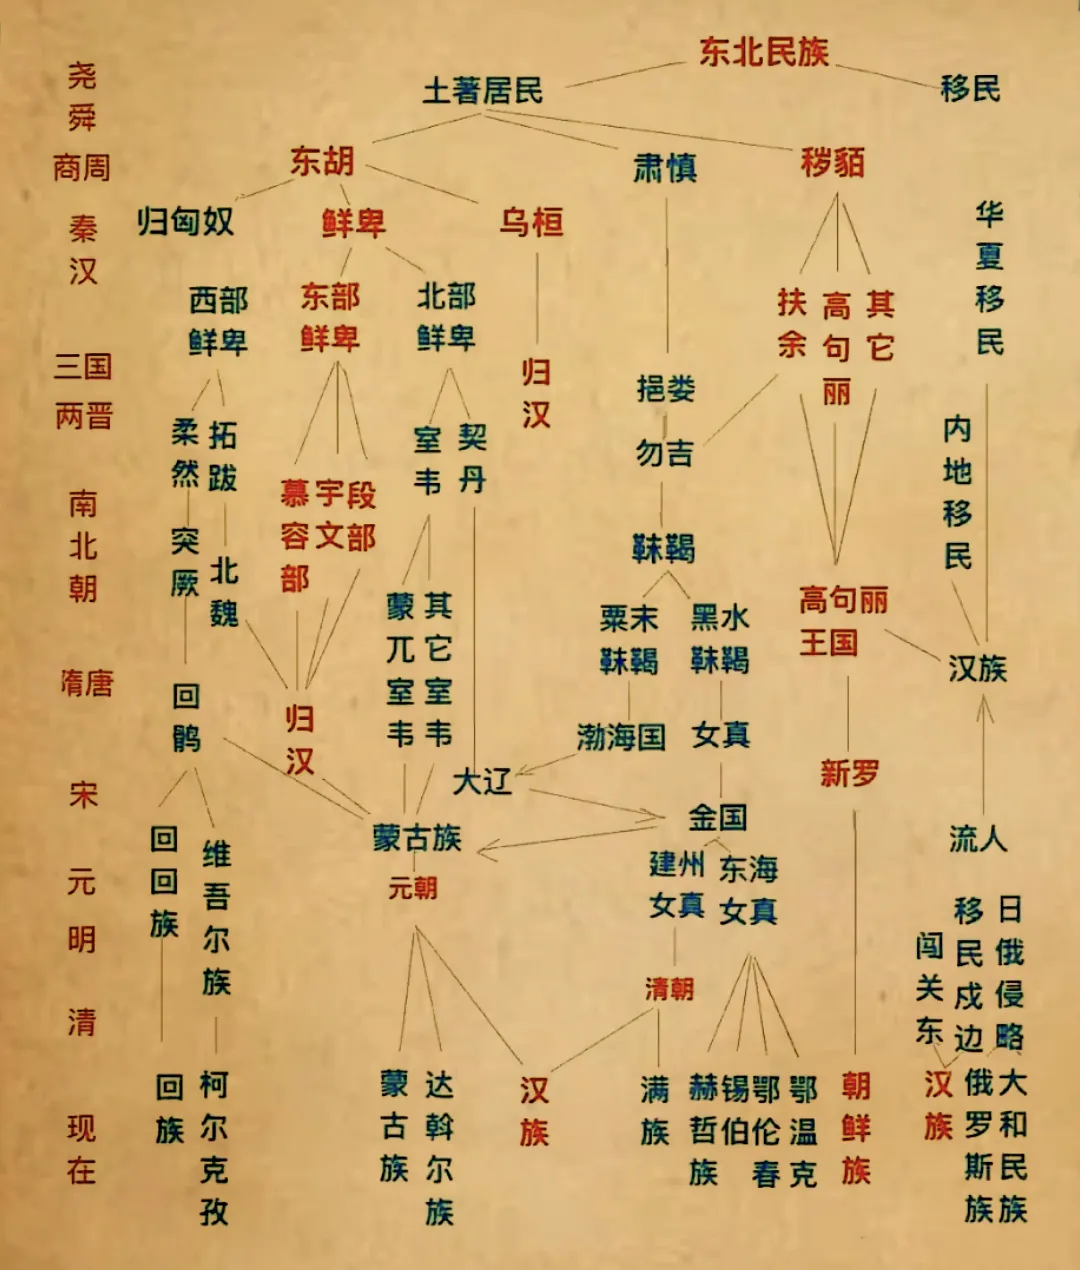 东北民族
土著居民
移民
尧舜
商周
秦汉
三国
两晋
南北朝
隋唐
宋
元
明
清
现在
东胡
肃慎
秽貊
归匈奴
鲜卑
乌桓
华夏移民
西部
鲜卑
东部
鲜卑
北部
鲜卑
扶余
高句丽
其它
归汉
挹娄
勿吉
柔然
拓跋
室韦
契丹
内地移民
慕容部
宇文
段部
突厥
北魏
靺鞨
蒙兀室韦
其它室韦
粟末
靺鞨
黑水
靺鞨
高句丽
王国
汉族
回鹘
归汉
渤海国
女真
新罗
大辽
金国
蒙古族
元朝
流人
回回族
维吾尔族
建州
女真
东海
女真
清朝
闯关东
移民戍边
日俄侵略
回族
柯尔克孜
蒙古族
达斡尔族
汉族
满族
赫哲族
锡伯
鄂伦春
鄂温克
朝鲜族
汉族
俄罗斯族
大和民族